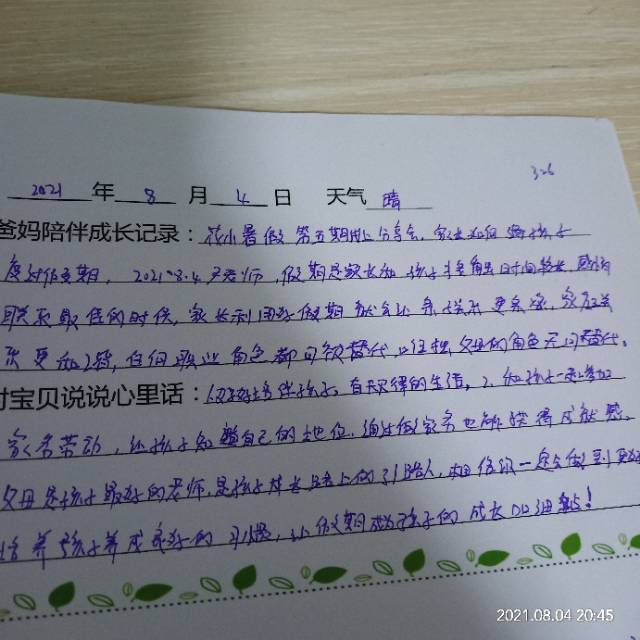 326
2021 年 8 月 4 日 天气 晴
爸妈陪伴成长记录：花小暑假第五期线上分享会，家长如何陪孩子
度过假期，2021.8.4 尹老师，假期是家长和孩子相处时间较长，
联系最佳的时候，家长利用好假期 亲子关系更亲密，家庭关
系更和谐，任何职业角色都可被替代，父母的角色不可替代。
对宝贝说说心里话：陪伴孩子，有规律的生活，2、和孩子一起参加
家务劳动，让孩子知道自己的地位，通过做家务也能获得成就感。
父母是孩子最好的老师，是孩子成长路上的引路人，相信你一定会做到更好
培养孩子养成良好的习惯，让假期成为孩子的成长加油站！
2021.08.04 20:45